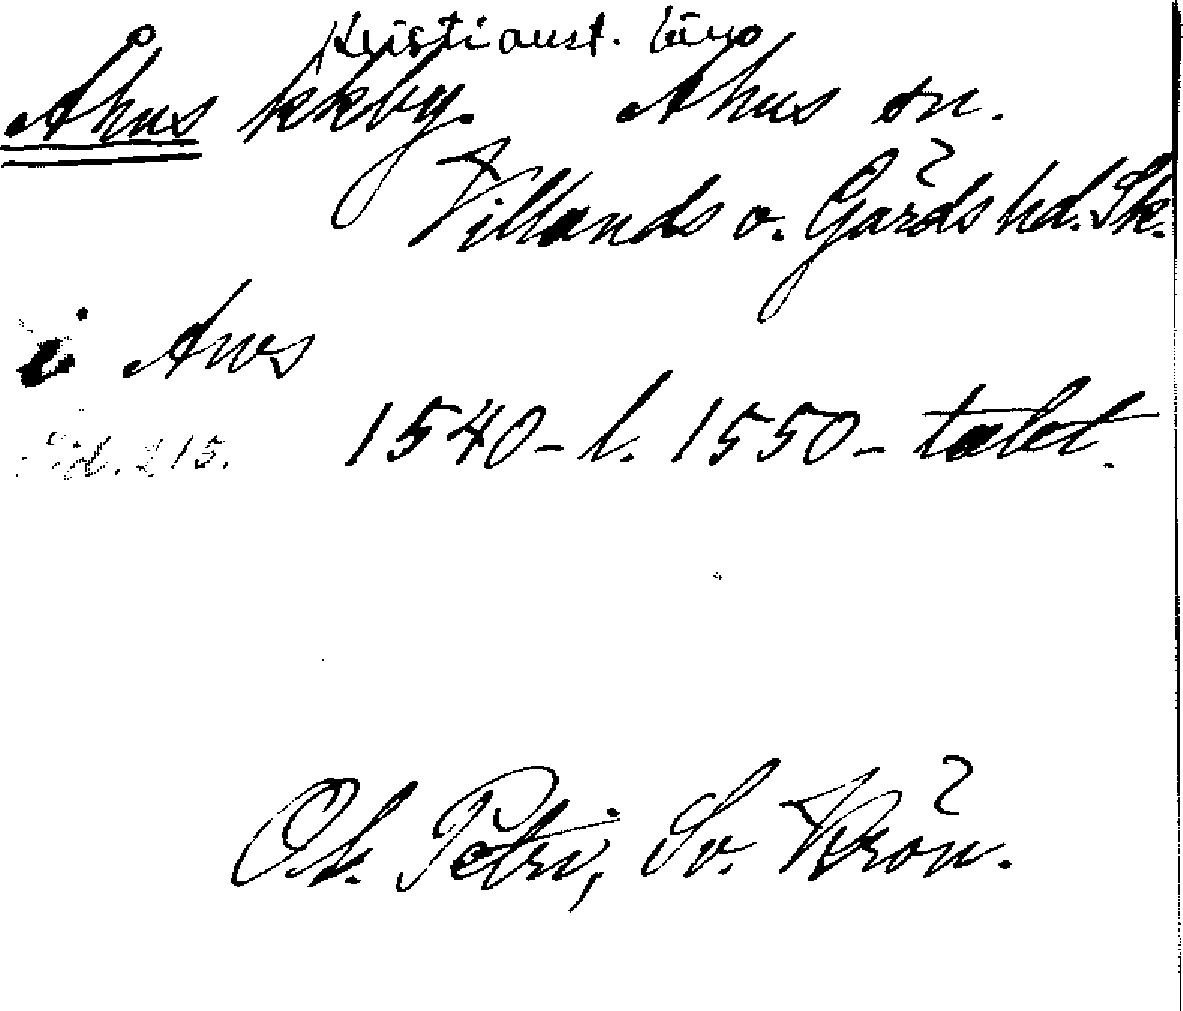 Kristianst. län
Åhus kkby. Åhus sn.
Villands o. Gärds hd. Sk.
i Aws
sid. 215. 1540- l. 1550-talet.
Ol. Petri, Sv. Krön.